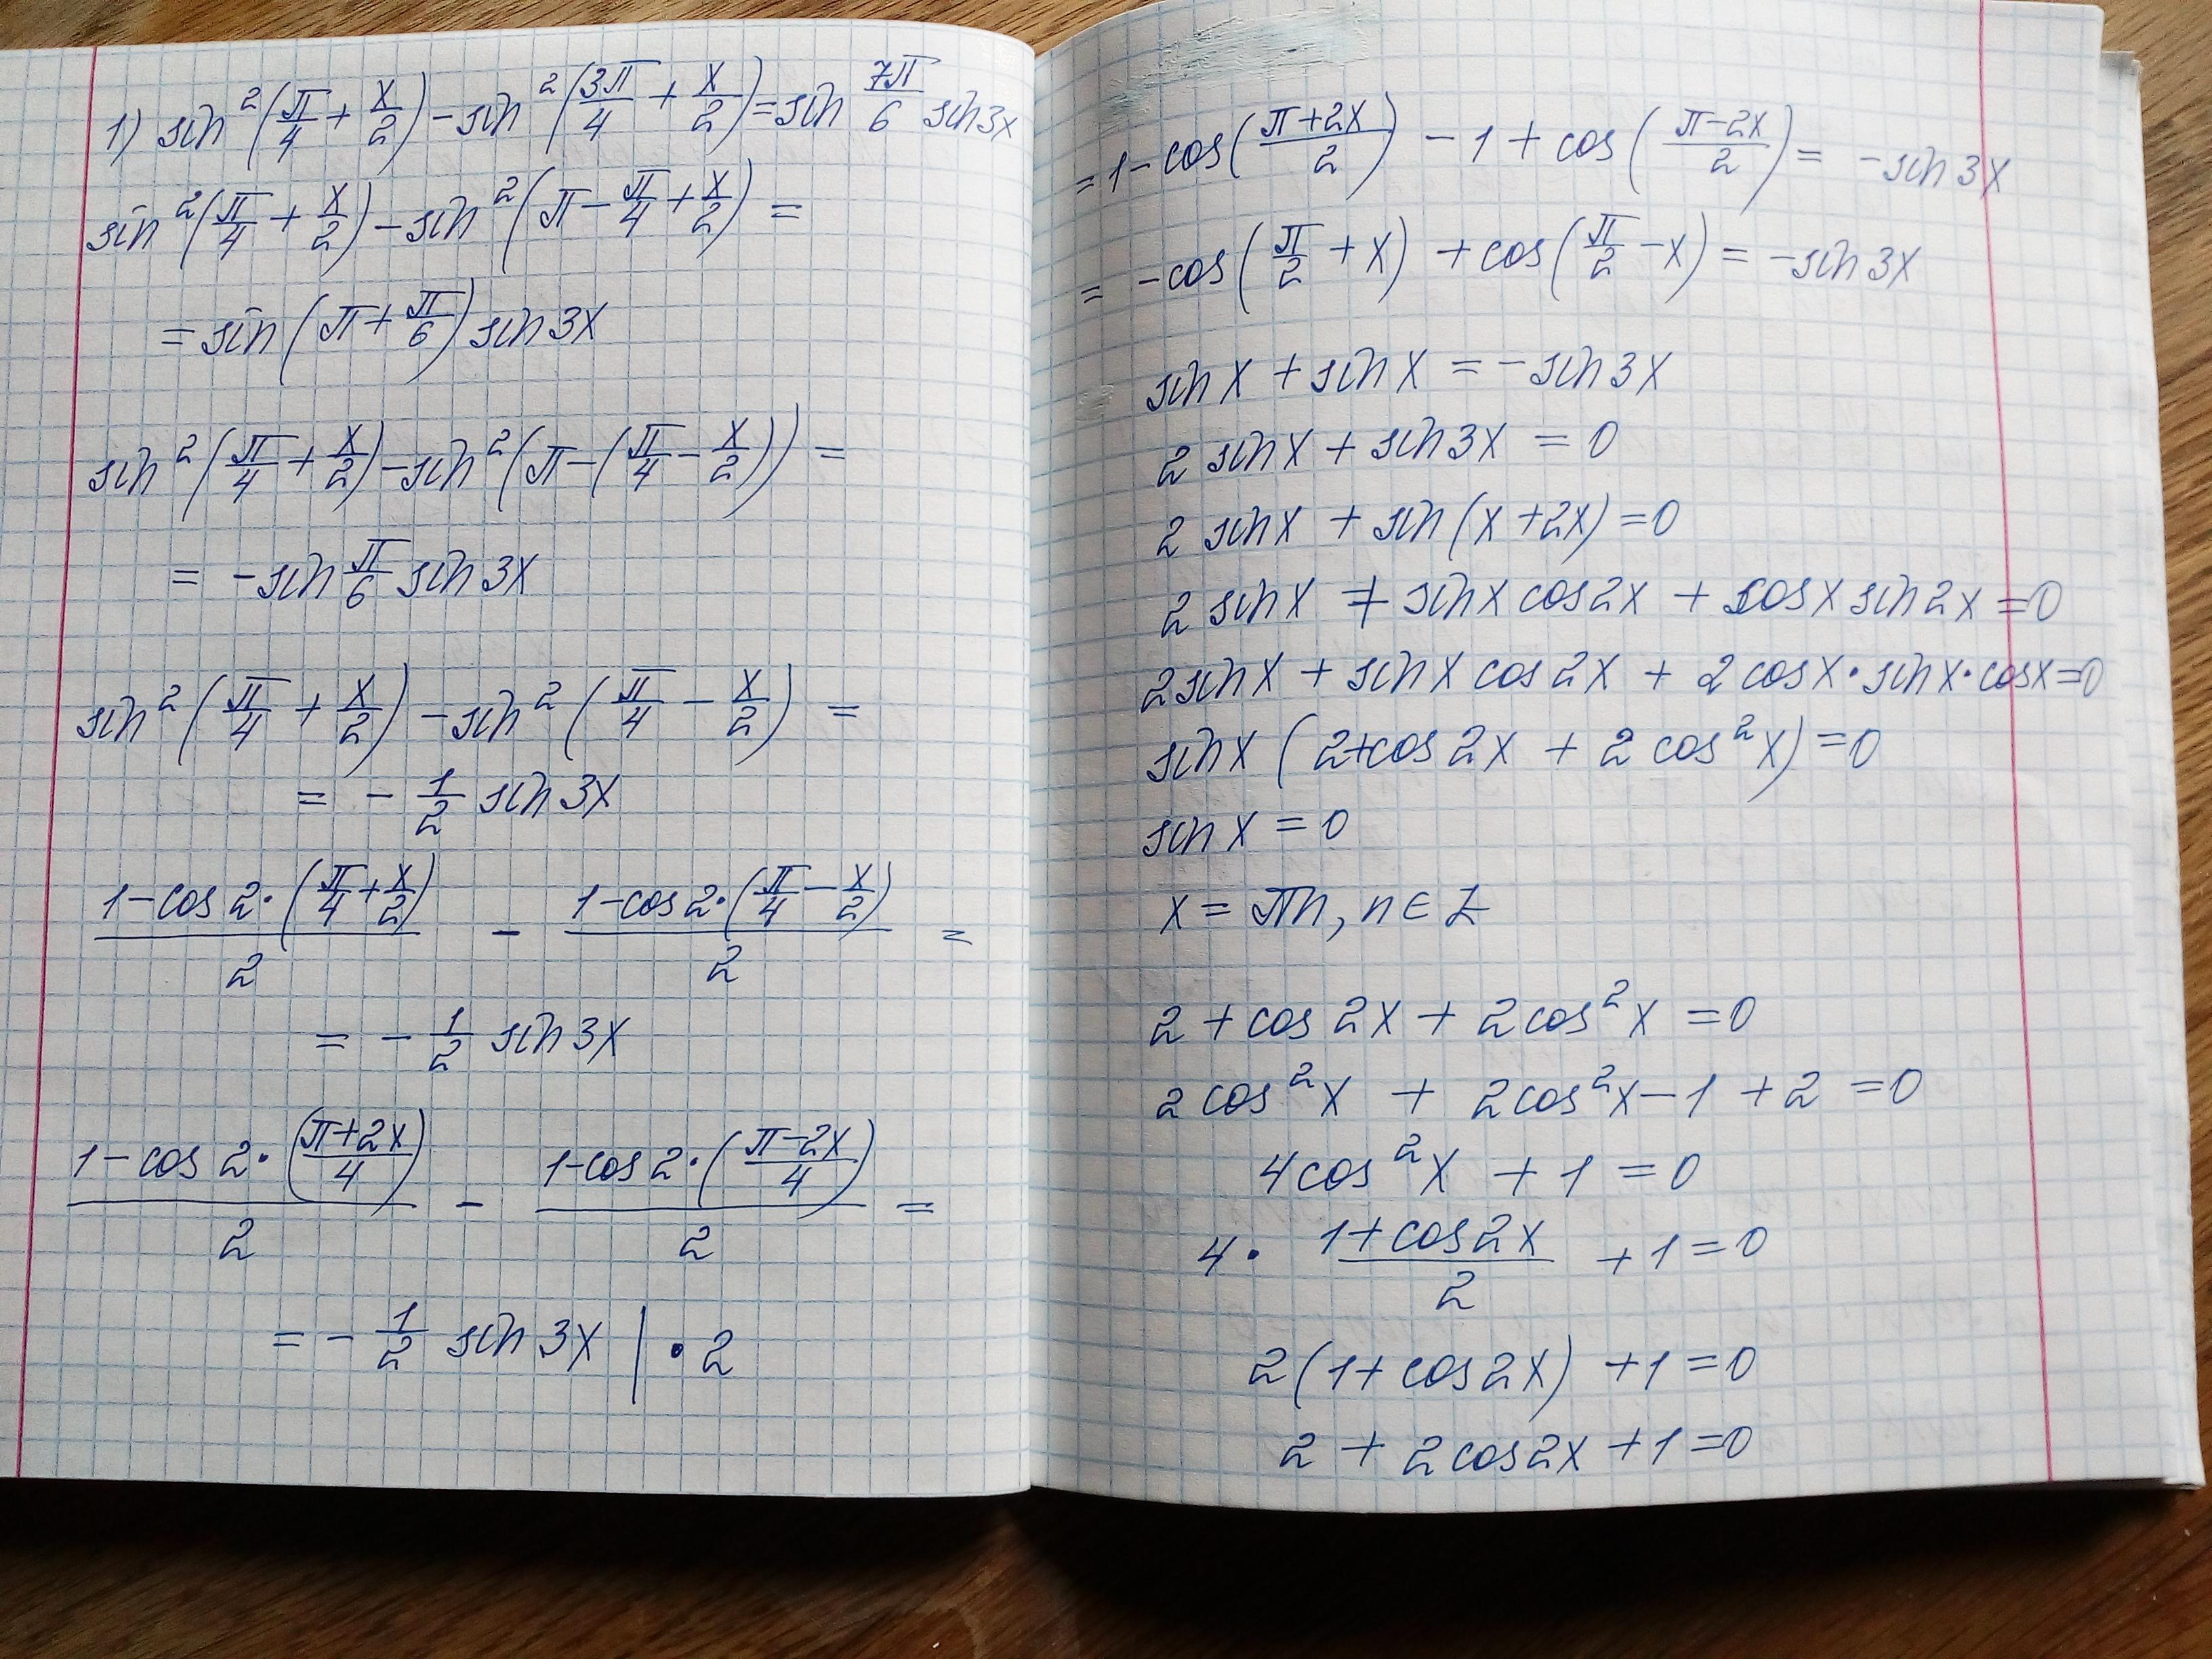 1) sin²(π/4 + x/2) - sin²(3π/4 + x/2) = sin 7π/6 sin3x
sin²(π/4 + x/2) - sin²(π - π/4 + x/2) =
= sin(π + π/6) sin3x
sin²(π/4 + x/2) - sin²(π - (π/4 - x/2)) =
= - sin π/6 sin3x
sin²(π/4 + x/2) - sin²(π/4 - x/2) =
= - 1/2 sin3x
(1 - cos 2·(π/4 + x/2))/2 - (1 - cos 2·(π/4 - x/2))/2 =
= - 1/2 sin3x
(1 - cos 2·((π+2x)/4))/2 - (1 - cos 2·((π-2x)/4))/2 =
= - 1/2 sin3x | · 2
= 1 - cos((π+2x)/2) - 1 + cos((π-2x)/2) = - sin3x
= - cos(π/2 + x) + cos(π/2 - x) = - sin3x
sinx + sinx = - sin3x
2 sinx + sin3x = 0
2 sinx + sin(x + 2x) = 0
2 sinx + sinx cos2x + cosx sin2x = 0
2sinx + sinx cos2x + 2cosx·sinx·cosx = 0
sinx (2 + cos2x + 2cos²x) = 0
sinx = 0
x = πn, n ∈ Z
2 + cos2x + 2cos²x = 0
2cos²x + 2cos²x - 1 + 2 = 0
4cos²x + 1 = 0
4 · (1 + cos2x)/2 + 1 = 0
2(1 + cos2x) + 1 = 0
2 + 2cos2x + 1 = 0